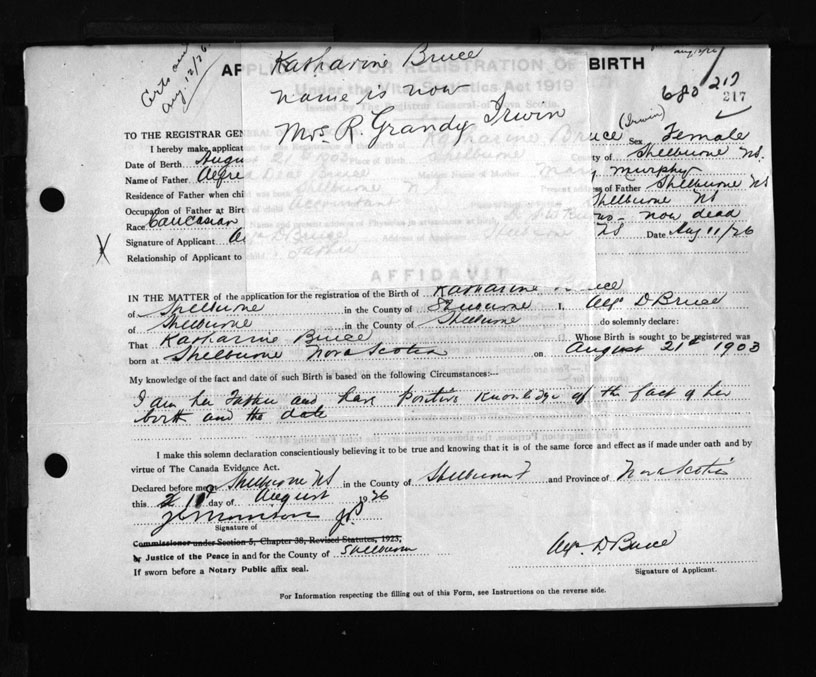 Certs on Aug. 12/26
aug. 12/26
Katharine Bruce
name is now
Mrs. R. Grandy Irwin
APPLICATION FOR REGISTRATION OF BIRTH
Under the Vital Statistics Act 1919
680 217
217
TO THE REGISTRAR GENERAL OF Nova Scotia
I hereby make application for the Registration of the Birth of Katharine Bruce (Irwin) Sex Female
Date of Birth August 21st 1903 Place of Birth Shelburne County of Shelburne NS.
Name of Father Alfred Deal Bruce Maiden Name of Mother Mary Murphy
Residence of Father when child was born Shelburne N Present address of Father Shelburne NS
Occupation of Father at Birth of child Accountant Shelburne NS
Race Caucasian now dead
Signature of Applicant D Bruce Shelburne NS Date Aug 11/26
Relationship of Applicant to Father
AFFIDAVIT
IN THE MATTER of the application for the registration of the Birth of Katharine Bruce
of Shelburne in the County of Shelburne I, D Bruce
of Shelburne in the County of Shelburne do solemnly declare:
That Katharine Bruce Whose Birth is sought to be registered was
born at Shelburne Nova Scotia on August 21st 1903
My knowledge of the fact and date of such Birth is based on the following Circumstances:--
I am her Father and have positive knowledge of the fact of her
birth and the date
I make this solemn declaration conscientiously believing it to be true and knowing that it is of the same force and effect as if made under oath and by
virtue of The Canada Evidence Act.
Declared before me at Shelburne NS in the County of Shelburne and Province of Nova Scotia
this day of August 1926
Morrison JP
Signature of
Commissioner under Section 5, Chapter 38, Revised Statutes, 1923,
Justice of the Peace in and for the County of Shelburne
If sworn before a Notary Public affix seal.
D Bruce
Signature of Applicant.
For Information respecting the filling out of this Form, see Instructions on the reverse side.